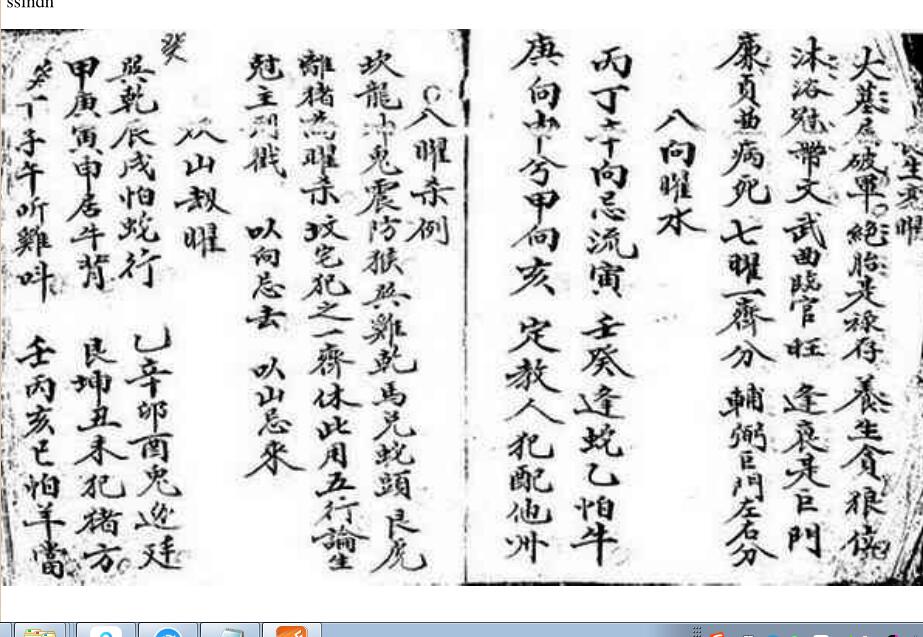 ssihdh
長生裏曜
火墓居破軍絕胎是祿存養生貪狼位
沐浴冠帶文武曲臨官旺逢衰是巨門
廉貞曲病死七曜一齊分輔弼巨門左右分
八向曜水
丙丁午向忌流寅壬癸逢蛇乙怕牛
庚向中兮甲向亥定教人犯配他州
八曜杀例
坎龍坤兎震防猴巽雞乾馬兑蛇頭艮虎
離猪為曜杀坟宅犯之一齊休此用五行論生
尅主刑戳以向忌去以山忌來
八山刼曜
癸
巽乾辰戌怕蛇行乙辛卯酉鬼
甲庚寅申居牛背艮坤丑未犯猪方
癸丁子午听雞呌壬丙亥巳怕羊當